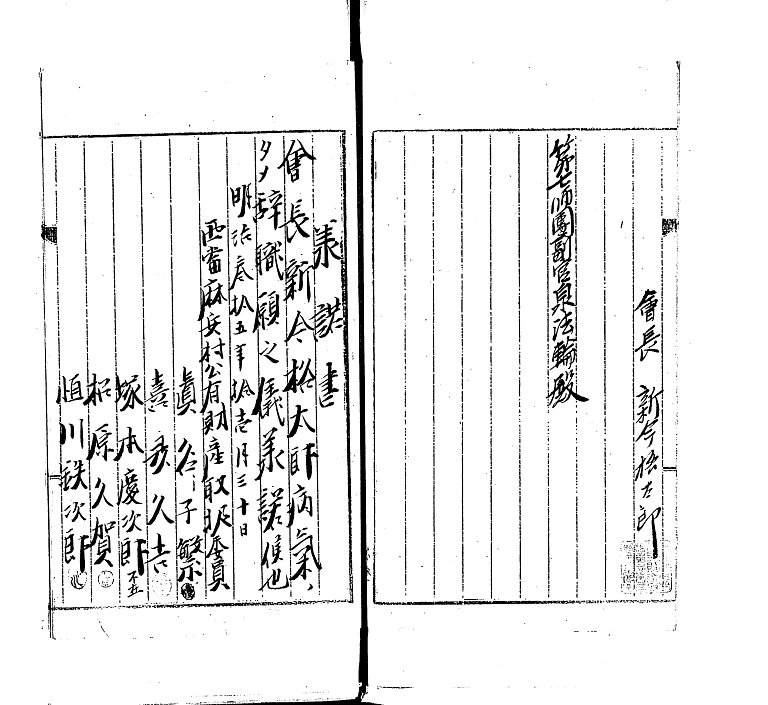 會長 新今格太郎
第七師團副官泉法輪殿
羕諾書
會長新今格太郎病氣ノ
タメ辞職願之儀羕諾候也
明治叁拾五年拾壱月三十日
西當麻兵村公有財産取扱委員
眞谷子繁
喜多久吉
塚本慶次郎
松原久賀
恒川鉄次郎